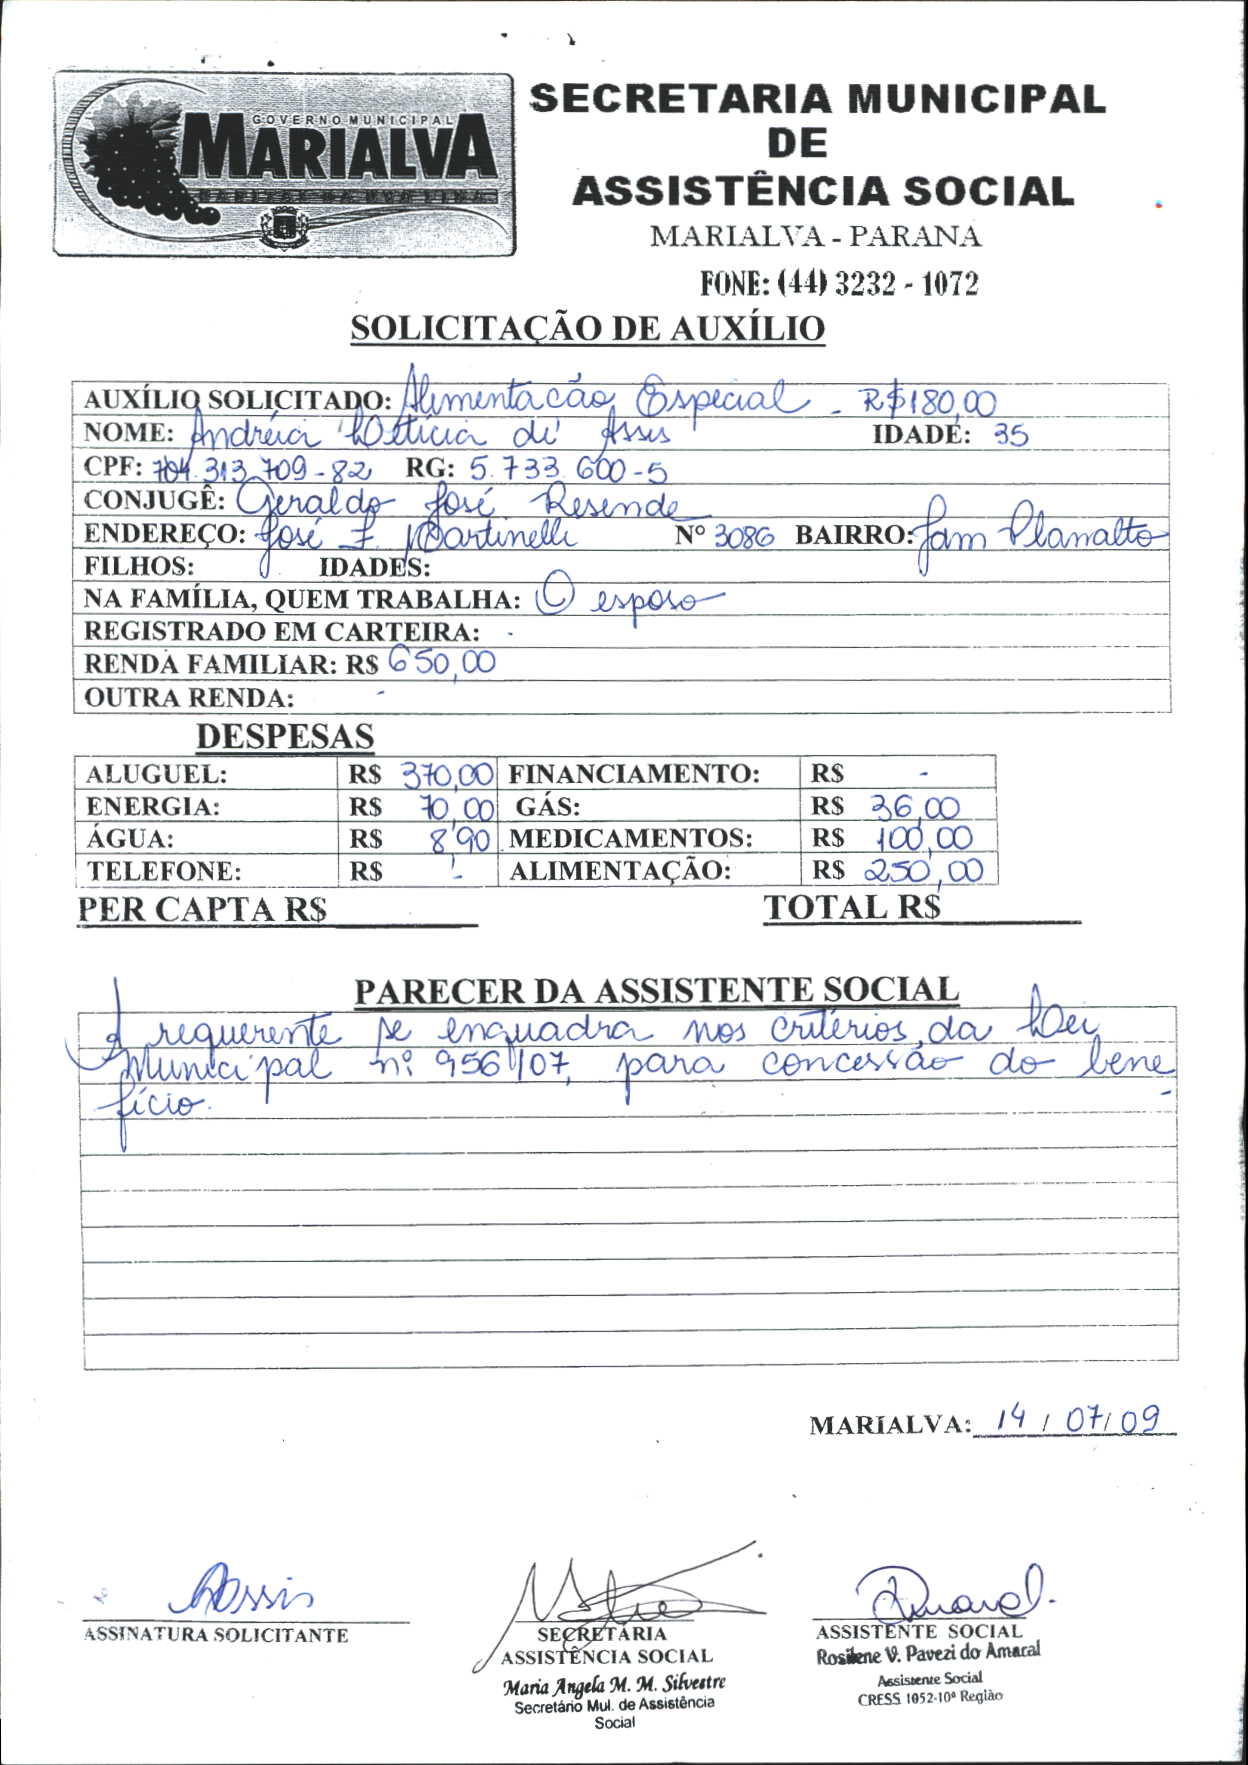 GOVERNO MUNICIPAL
MARIALVA
SECRETARIA MUNICIPAL
DE
ASSISTÊNCIA SOCIAL
MARIALVA - PARANA
FONE: (44) 3232 - 1072
SOLICITAÇÃO DE AUXÍLIO
AUXÍLIO SOLICITADO: Alimentacão Especial - R$180,00
NOME: Andréia Letícia de Assis IDADE: 35
CPF: 704.313.709-82 RG: 5.733.600-5
CONJUGÊ: Geraldo José Resende
ENDEREÇO: José F. Martinelli Nº 3086 BAIRRO: Jam Planalto
FILHOS: IDADES:
NA FAMÍLIA, QUEM TRABALHA: O esposo
REGISTRADO EM CARTEIRA: -
RENDA FAMILIAR: R$ 650,00
OUTRA RENDA: -
DESPESAS
ALUGUEL: R$ 370,00 FINANCIAMENTO: R$ -
ENERGIA: R$ 70,00 GÁS: R$ 36,00
ÁGUA: R$ 8,90 MEDICAMENTOS: R$ 100,00
TELEFONE: R$ - ALIMENTAÇÃO: R$ 250,00
PER CAPTA R$________ TOTAL R$________
PARECER DA ASSISTENTE SOCIAL
A requerente se enquadra nos critérios da Lei
Municipal nº 956/07, para concessão do bene-
fício.
MARIALVA: 14 / 07/ 09
Assis
ASSINATURA SOLICITANTE
SECRETÁRIA
ASSISTÊNCIA SOCIAL
Maria Angela M. M. Silvestre
Secretário Mul. de Assistência
Social
ASSISTENTE SOCIAL
Rosilene V. Pavezi do Amaral
Assistente Social
CRESS 1052-10ª Região